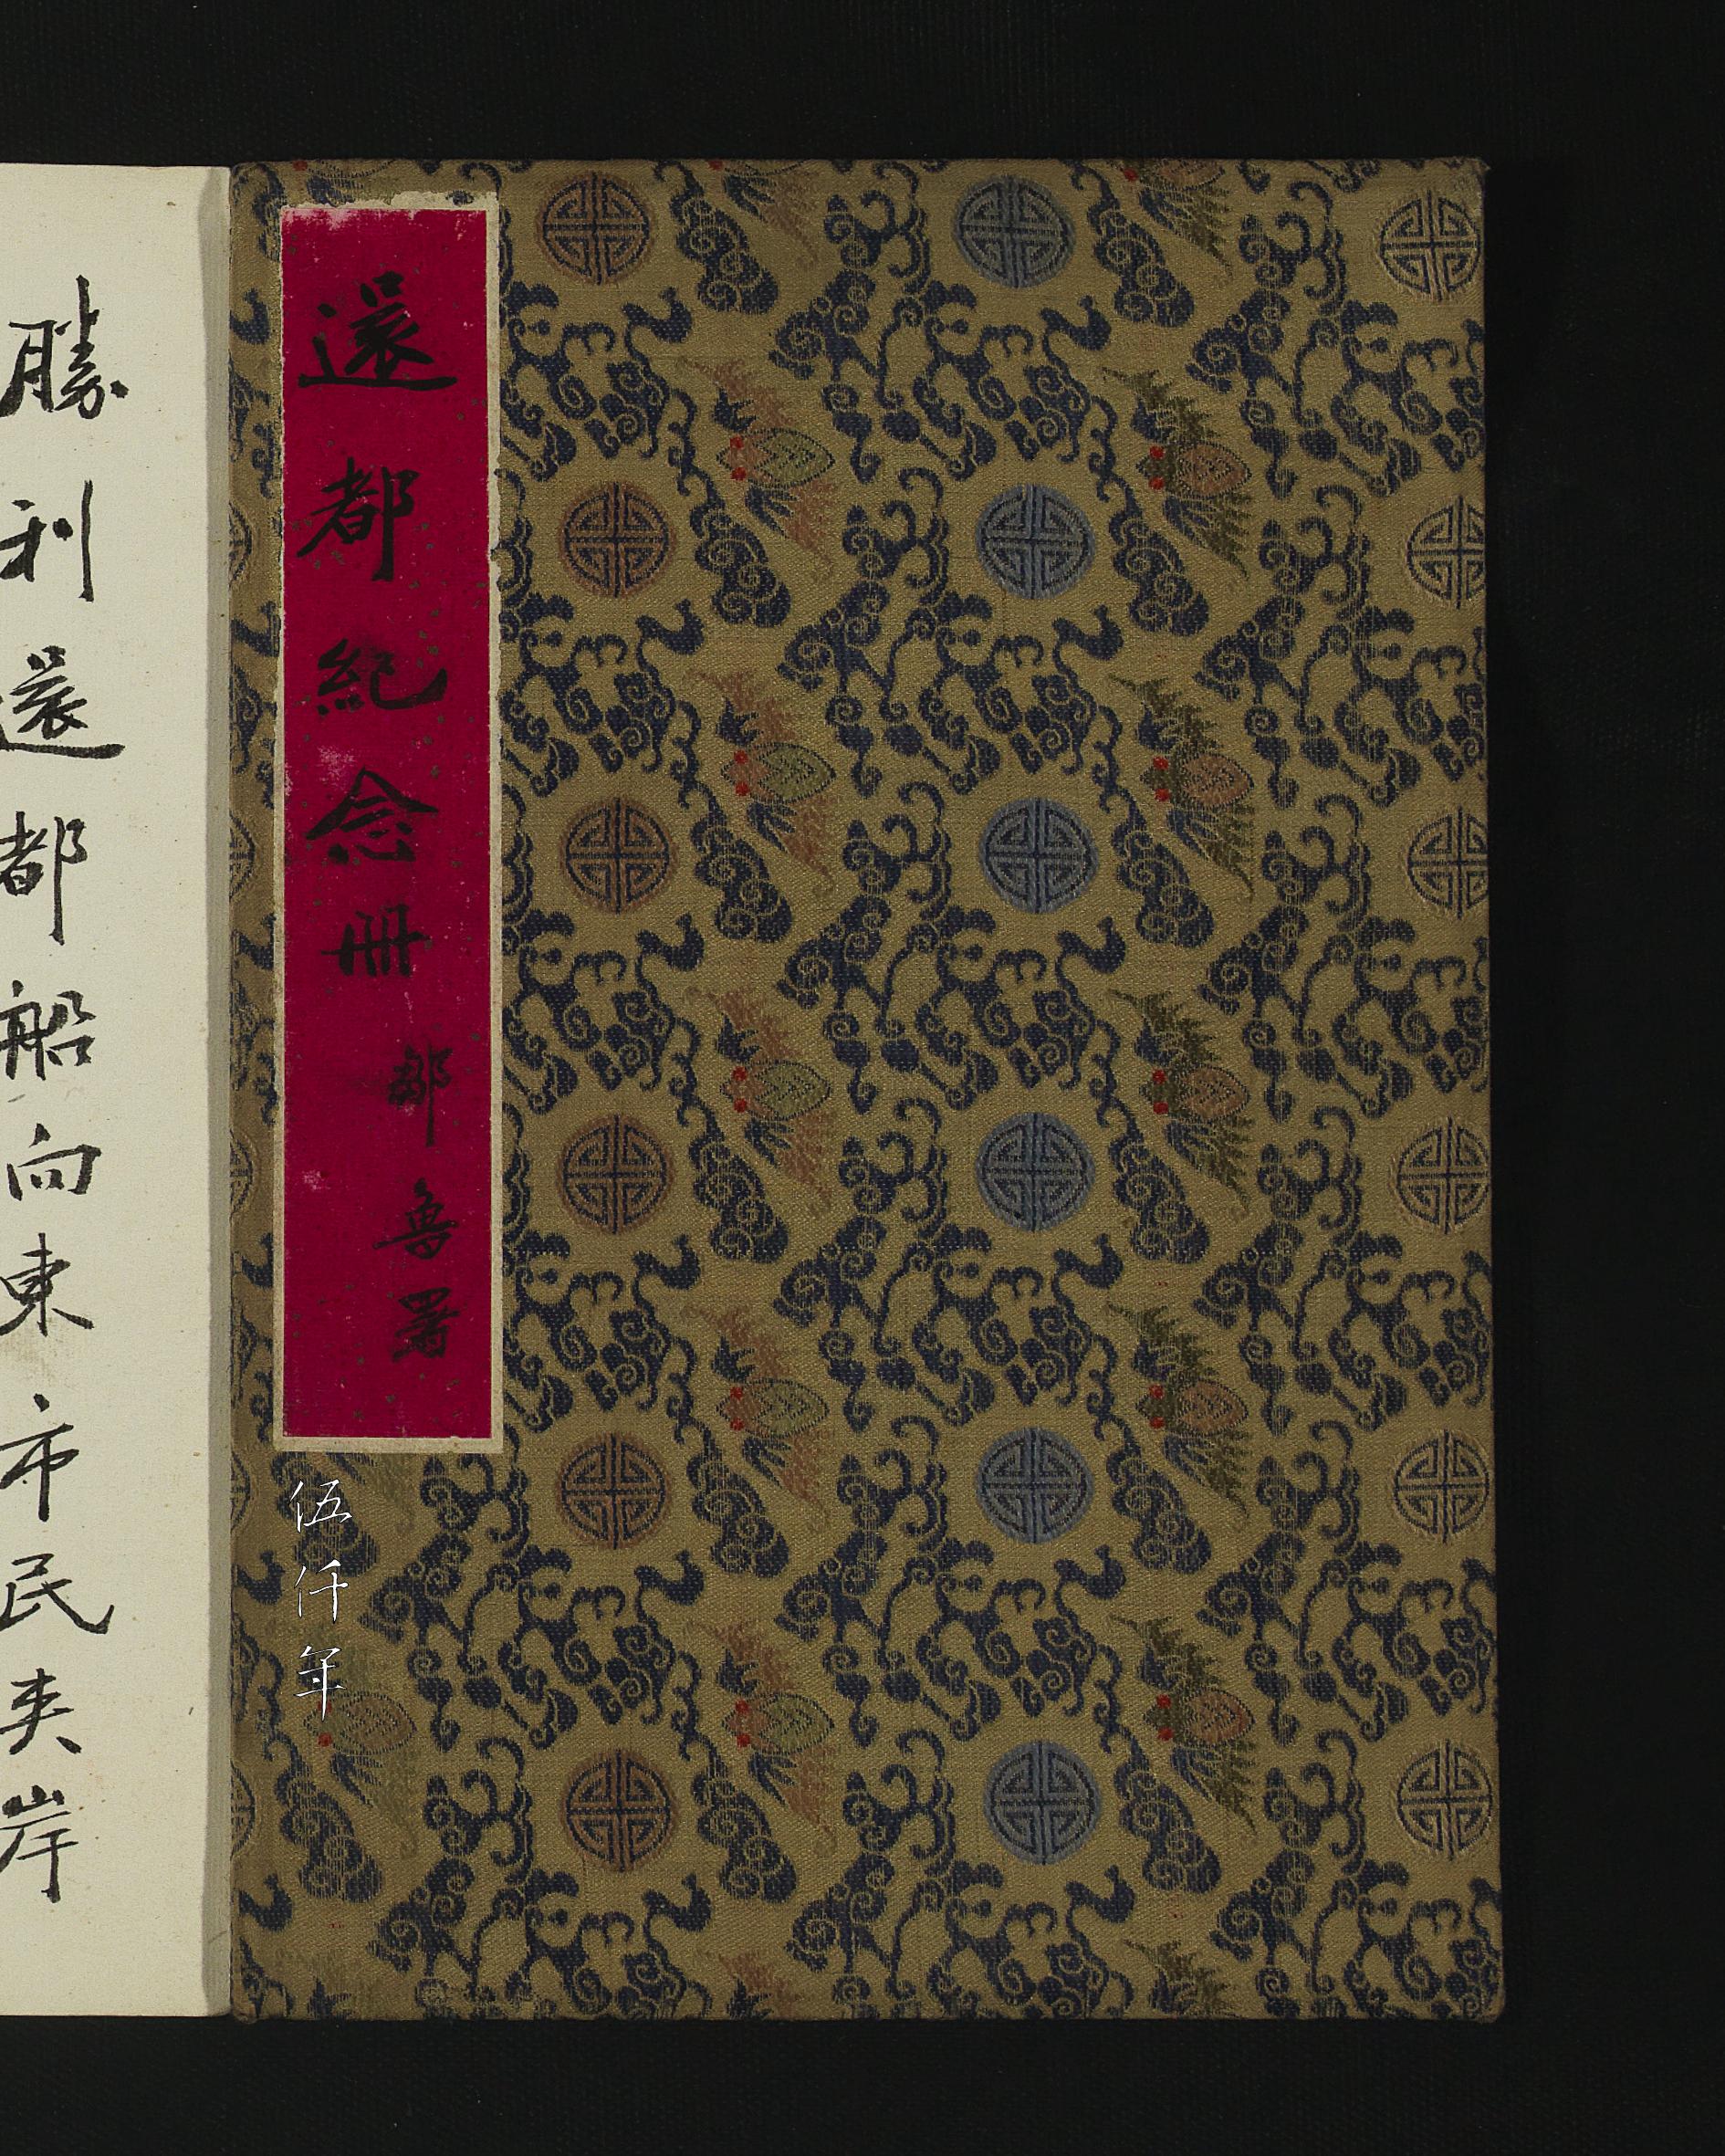 還都紀念冊
部魯署
伍仟年
勝利還都船向東市民夾岸